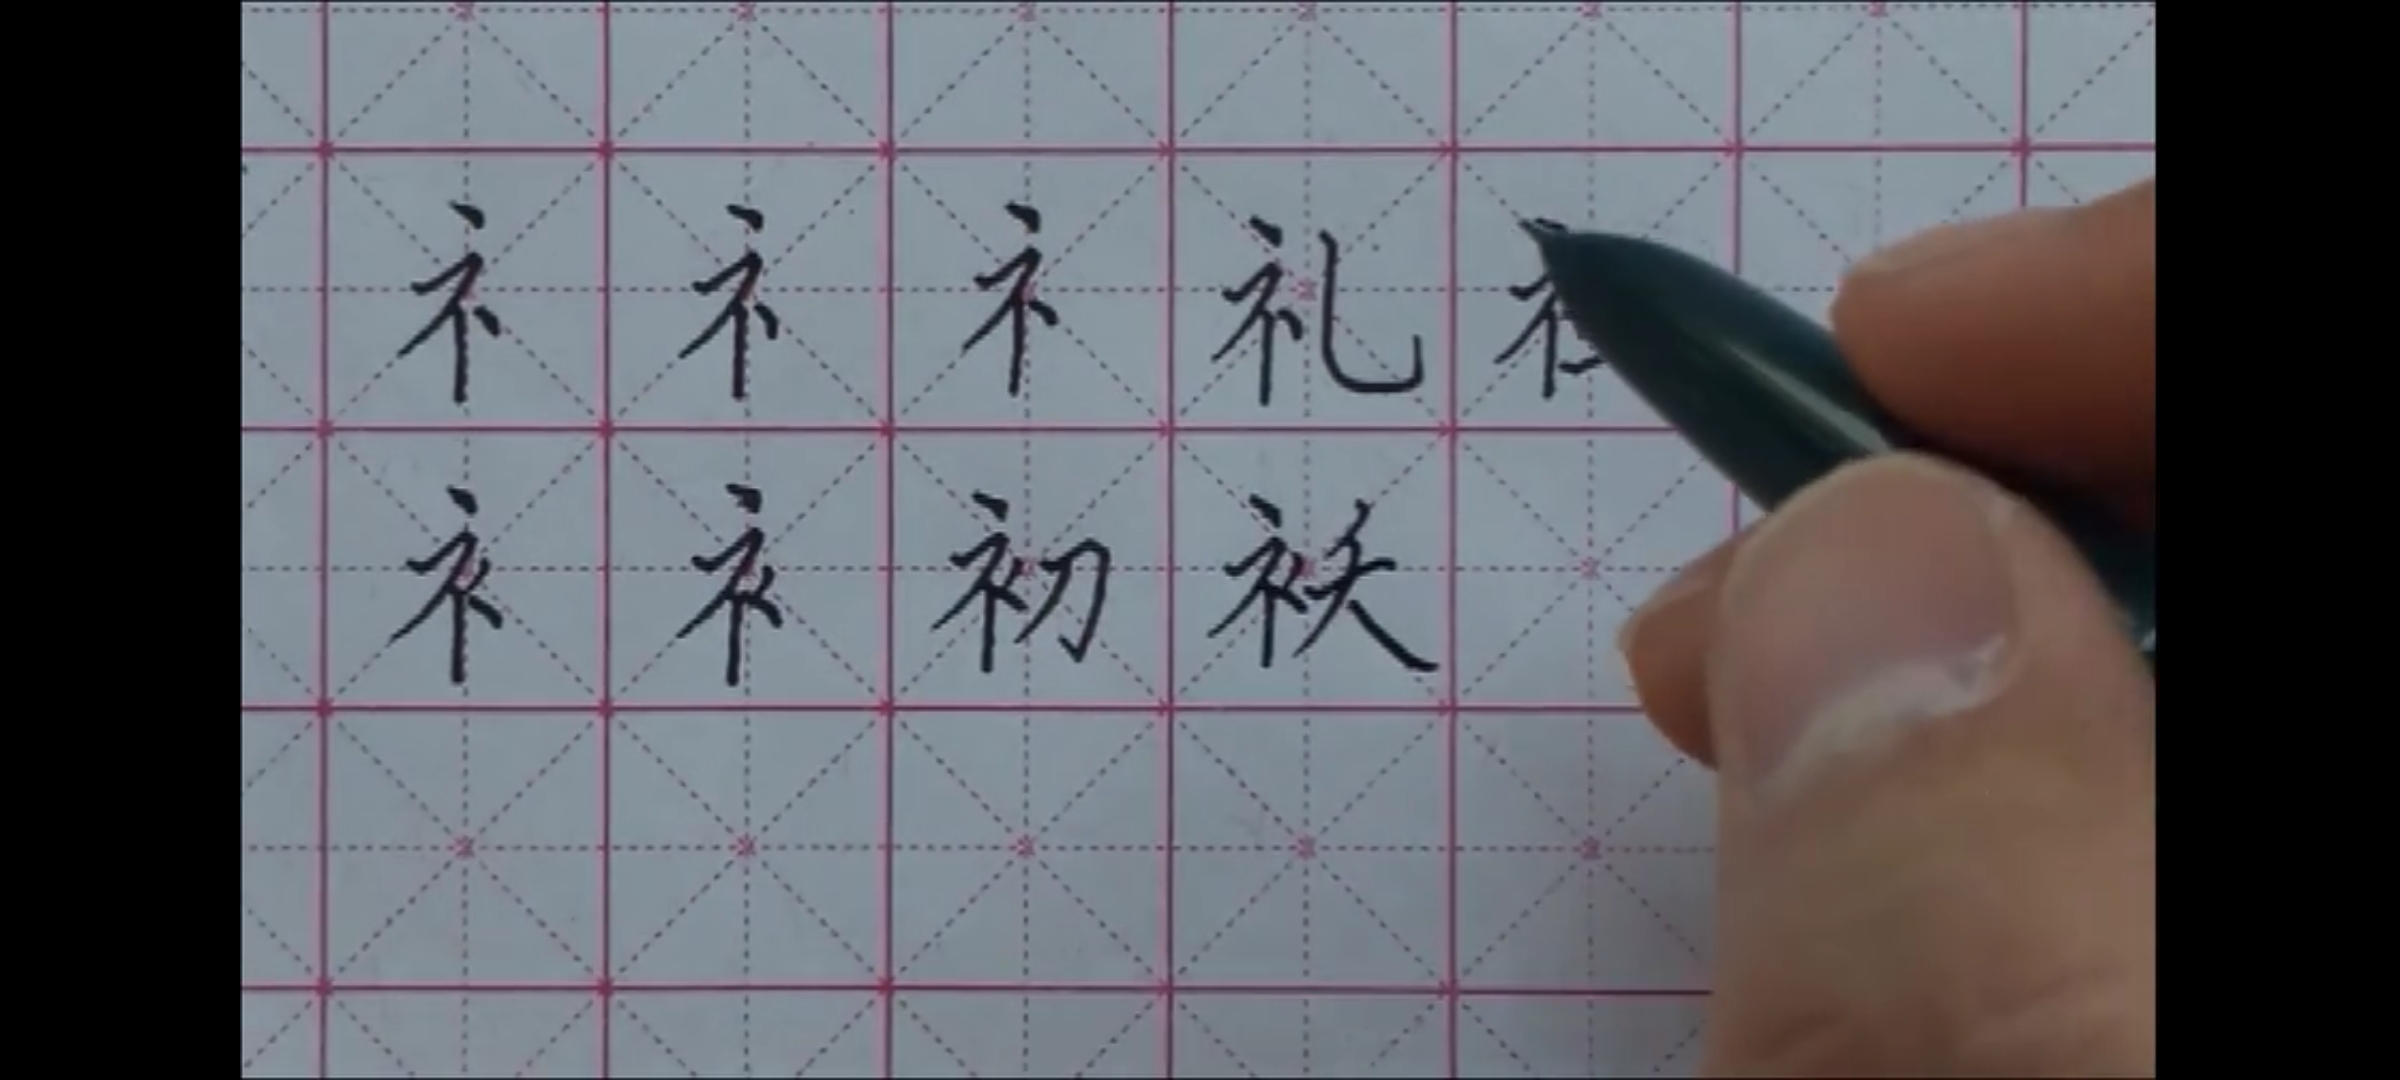 礻 礻 礻 礼
衤 衤 初 袄